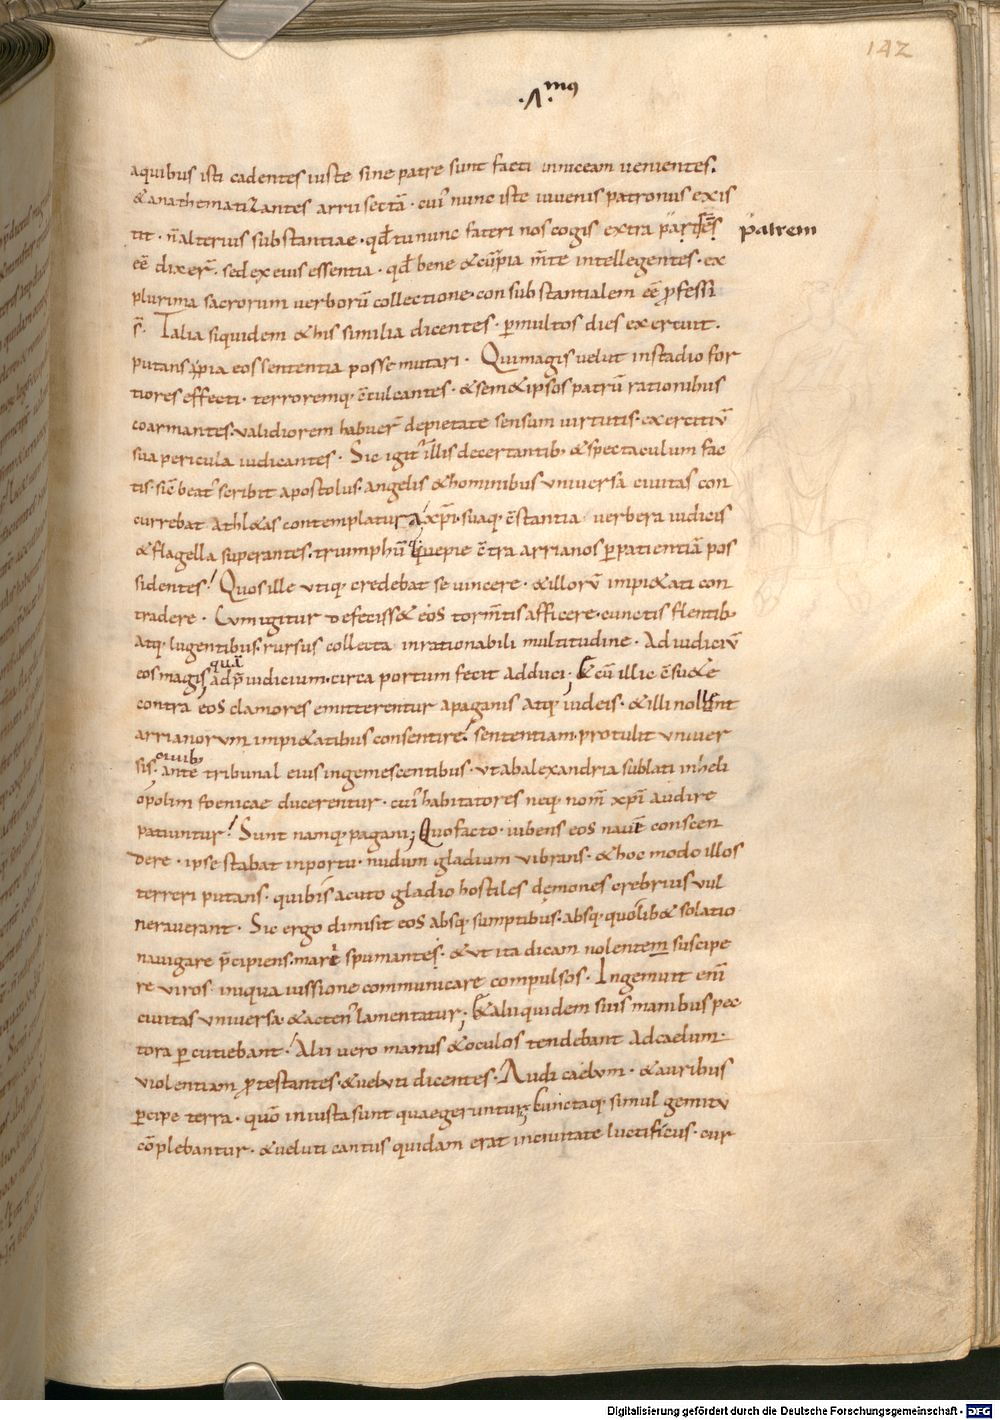 142
·Λ·mus
aquibus isti cadentes iuste sine patre sunt facti inniceam uenientes.
& anathematizantes arrii sectā · cui' nunc iste iuuenis patronus exis
tit · ñ alterius substantiae · qđ tu nunc fateri nos cogis extra partes patrem
eē dixer̄ · sed ex eius essentia · qđ bene & cū pia m̄te intellegentes · ex
plurima sacrorum uerborū collectione · consubstantialem eē p̄fessi
s̄ · Talia siquidem & his similia dicentes · permultos dies exercuit ·
putans ip̄ia eos sententia posse mutari · Qui magis uelut instadio for
tiores effecti · terroremq; c̄culcantes · & sem&ipsos patrū rationibus
coarmantes · ualidiorem habuer̄ depietate sensum uirtutis · exercitiū
sua pericula iudicantes · Sic igit' illis decertantib; & spectaculum fac
tis · sic̄ beat' scribit apostolus · angelis & hominibus uniuersa ciuitas con
currebat athl&as contemplatura xp̄i · suaq; c̄stantia uerbera iudicis
& flagella superantes · triumphū quepie c̄tra arrianos p̱patientiā pos
sidentes! Quos ille utiq; credebat se uincere · & illorū impi&ati con
tradere · Cum igitur defeciss& eos torm̄tis afficere · cunctis flentib;
atq; lugentibus · rursus collecta inrationabili multitudine · Ad iudiciū
eos magis quā ad p̄iudicium · circa portum fecit adduci; & cū illic c̄su&e
contra eos clamores emitterentur apaganis atq; iudeis · & illi nollent
arrianorum impi&atibus consentire! sententiam protulit uniuer
sis · ciuib; ante tribunal eius ingemescentibus · ut abalexandria sublati inheli
opolim foenicae ducerentur · cui' habitatores neq; nom̄ xp̄i audire
patiuntur! Sunt namq; pagani; Quo facto · iubens eos nauē conscen
dere · ipse stabat inportu · nudum gladium uibrans · & hoc modo illos
terreri putans · qui bis acuto gladio hostiles demones crebrius uul
nerauerant · Sic ergo dimisit eos absq; sumptibus · absq; quolib& solatio
nauigare p̄cipiens · mare spumante · & ut ita dicam nolentem suscipe
re uiros · iniqua iussione communicare compulsos · Ingemuit eni'
ciuitas uniuersa · & acten' lamentatur; & alii quidem suis manibus pec
tora percutiebant! Alii uero manus & oculos tendebant ad caelum ·
uiolentiam p̄testantes · & ueluti dicentes · Audi caelum · & auribus
percipe terra · quō iniusta sunt quae geruntur; Cunctaq; simul gemitu
cōplebantur · & ueluti cantus quidam erat inciuitate luctificus · cur
Digitalisierung gefördert durch die Deutsche Forschungsgemeinschaft - DFG